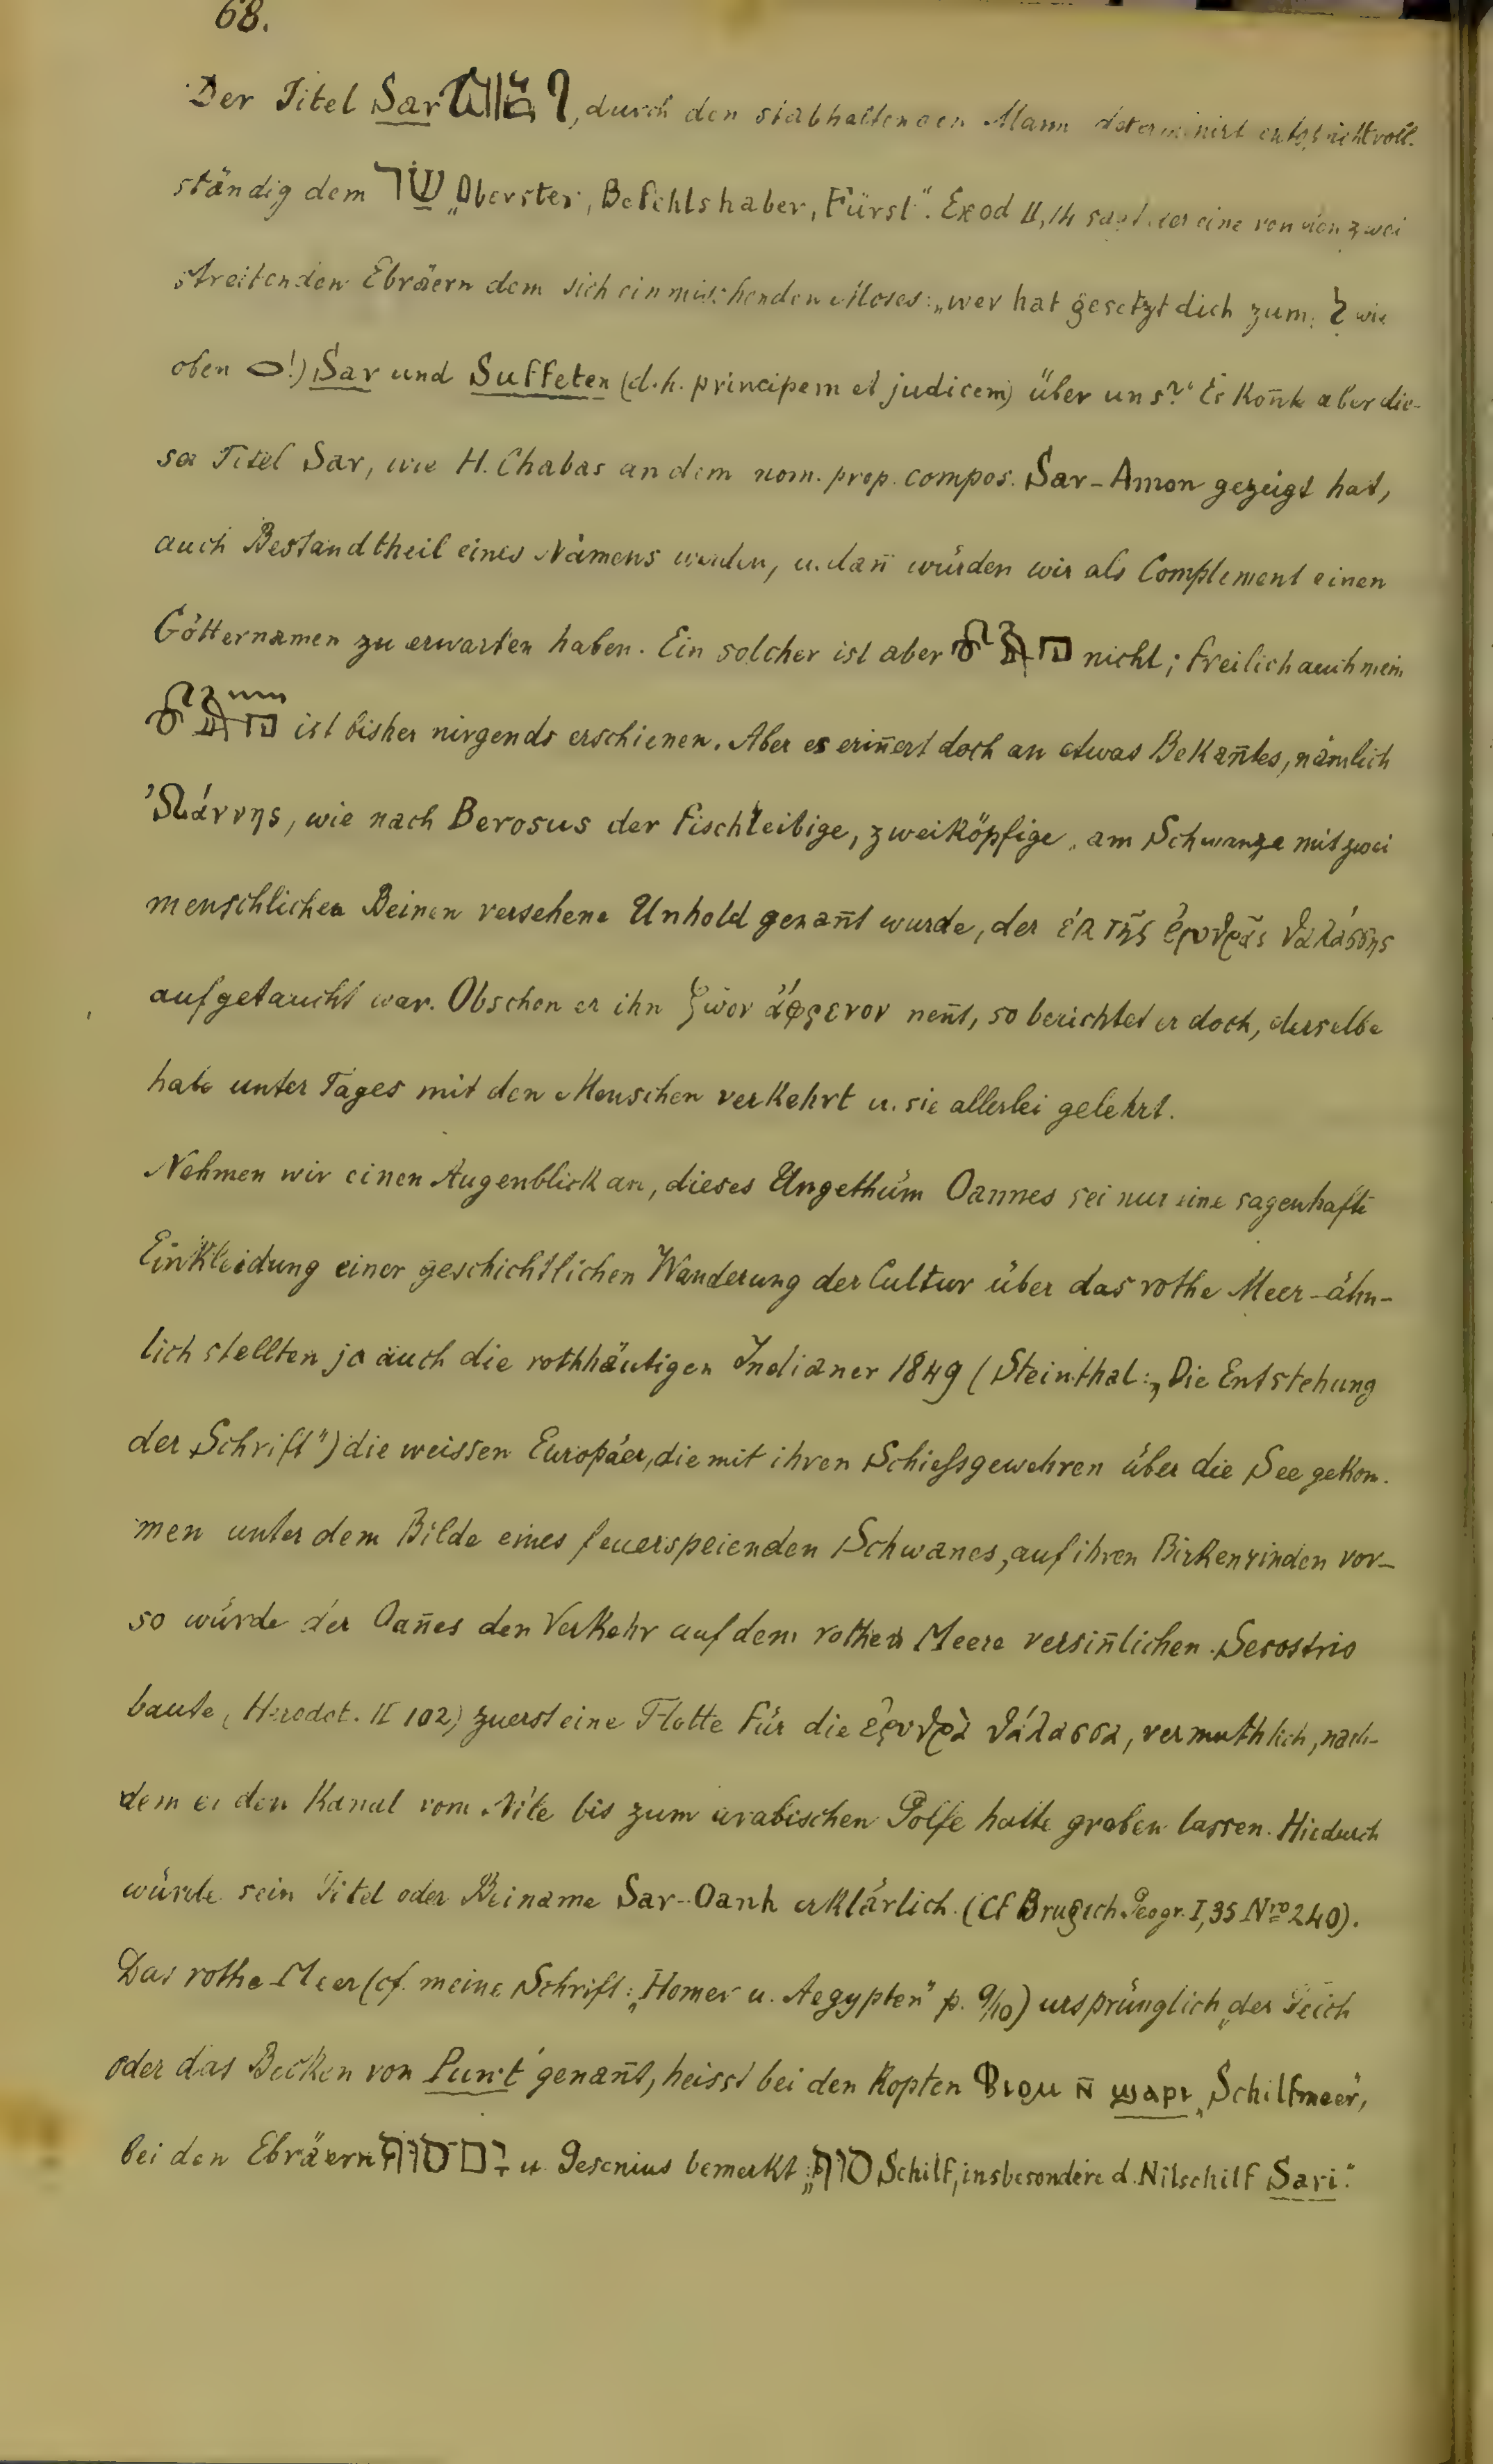 68.
Der Titel Sar , durch den stabhaltenden Mann determinirt entspricht voll-
ständig dem שׂר „Oberster, Befehlshaber, Fürst“. Exod II,14 sagt der eine von den zwei
streitenden Ebräern dem sich einmischenden Moses: „wer hat gesetzt dich zum wie
oben !) Sar und Suffeten (d.h. principem et judicem) über uns?“ Es kon̄te aber die-
ser Titel Sar, wie H. Chabas an dem nom. prop. compos. Sar-Amon gezeigt hat,
auch Bestandtheil eines Namens werden, u. dan̄ würden wir als Complement einen
Götternamen zu erwarten haben. Ein solcher ist aber nicht; freilich auch mein
ist bisher nirgends erschienen. Aber es erin̄ert doch an etwas Bekan̄tes, nämlich
Ὠάννης, wie nach Berosus der fischleibige, zweiköpfige, am Schwanze mit zwei
menschlichen Beinen versehene Unhold genan̄t wurde, der ἐκ τῆς ἐρυθρᾶς θαλάσσης
aufgetaucht war. Obschon er ihn ζωον ἄφρενον nen̄t, so berichtet er doch, derselbe
habe unter Tages mit den Menschen verkehrt u. sie allerlei gelehrt.
Nehmen wir einen Augenblick an, dieses Ungethüm Oannes sei nur eine sagenhafte
Einkleidung einer geschichtlichen Wanderung der Cultur über das rothe Meer – ähn-
lich stellten ja auch die rothhäutigen Indianer 1849 (Steinthal: „Die Entstehung
der Schrift“) die weissen Europäer, die mit ihren Schiessgewehren über die See gekom-
men unter dem Bilde eines feuerspeienden Schwanes, auf ihren Birkenrinden vor –
so würde der Oan̄es den Verkehr auf dem rothen Meere versin̄lichen. Sesostris
baute (Herodot. II 102) zuerst eine Flotte für die ἐρυθρὰ θάλασσα, vermuthlich, nach-
dem er den Kanal vom Nile bis zum arabischen Golfe hatte graben lassen. Hiedurch
würde sein Titel oder Beiname Sar-Oanh erklärlich. (Cf Brugsch Geogr. I, 35 Nro 240).
Das rothe Meer (cf. meine Schrift: „Homer u. Aegypten“ p. 9/10) ursprünglich „der Teich
oder das Becken von Punt“ genan̄t, heisst bei den Kopten Ⲫⲓⲟⲙ ⲛ̄ ϣⲁⲣⲓ „Schilfmeer“,
bei den Ebräern יַם סוף u. Gesenius bemerkt „סוף Schilf, insbesondere d. Nilschilf Sari.“